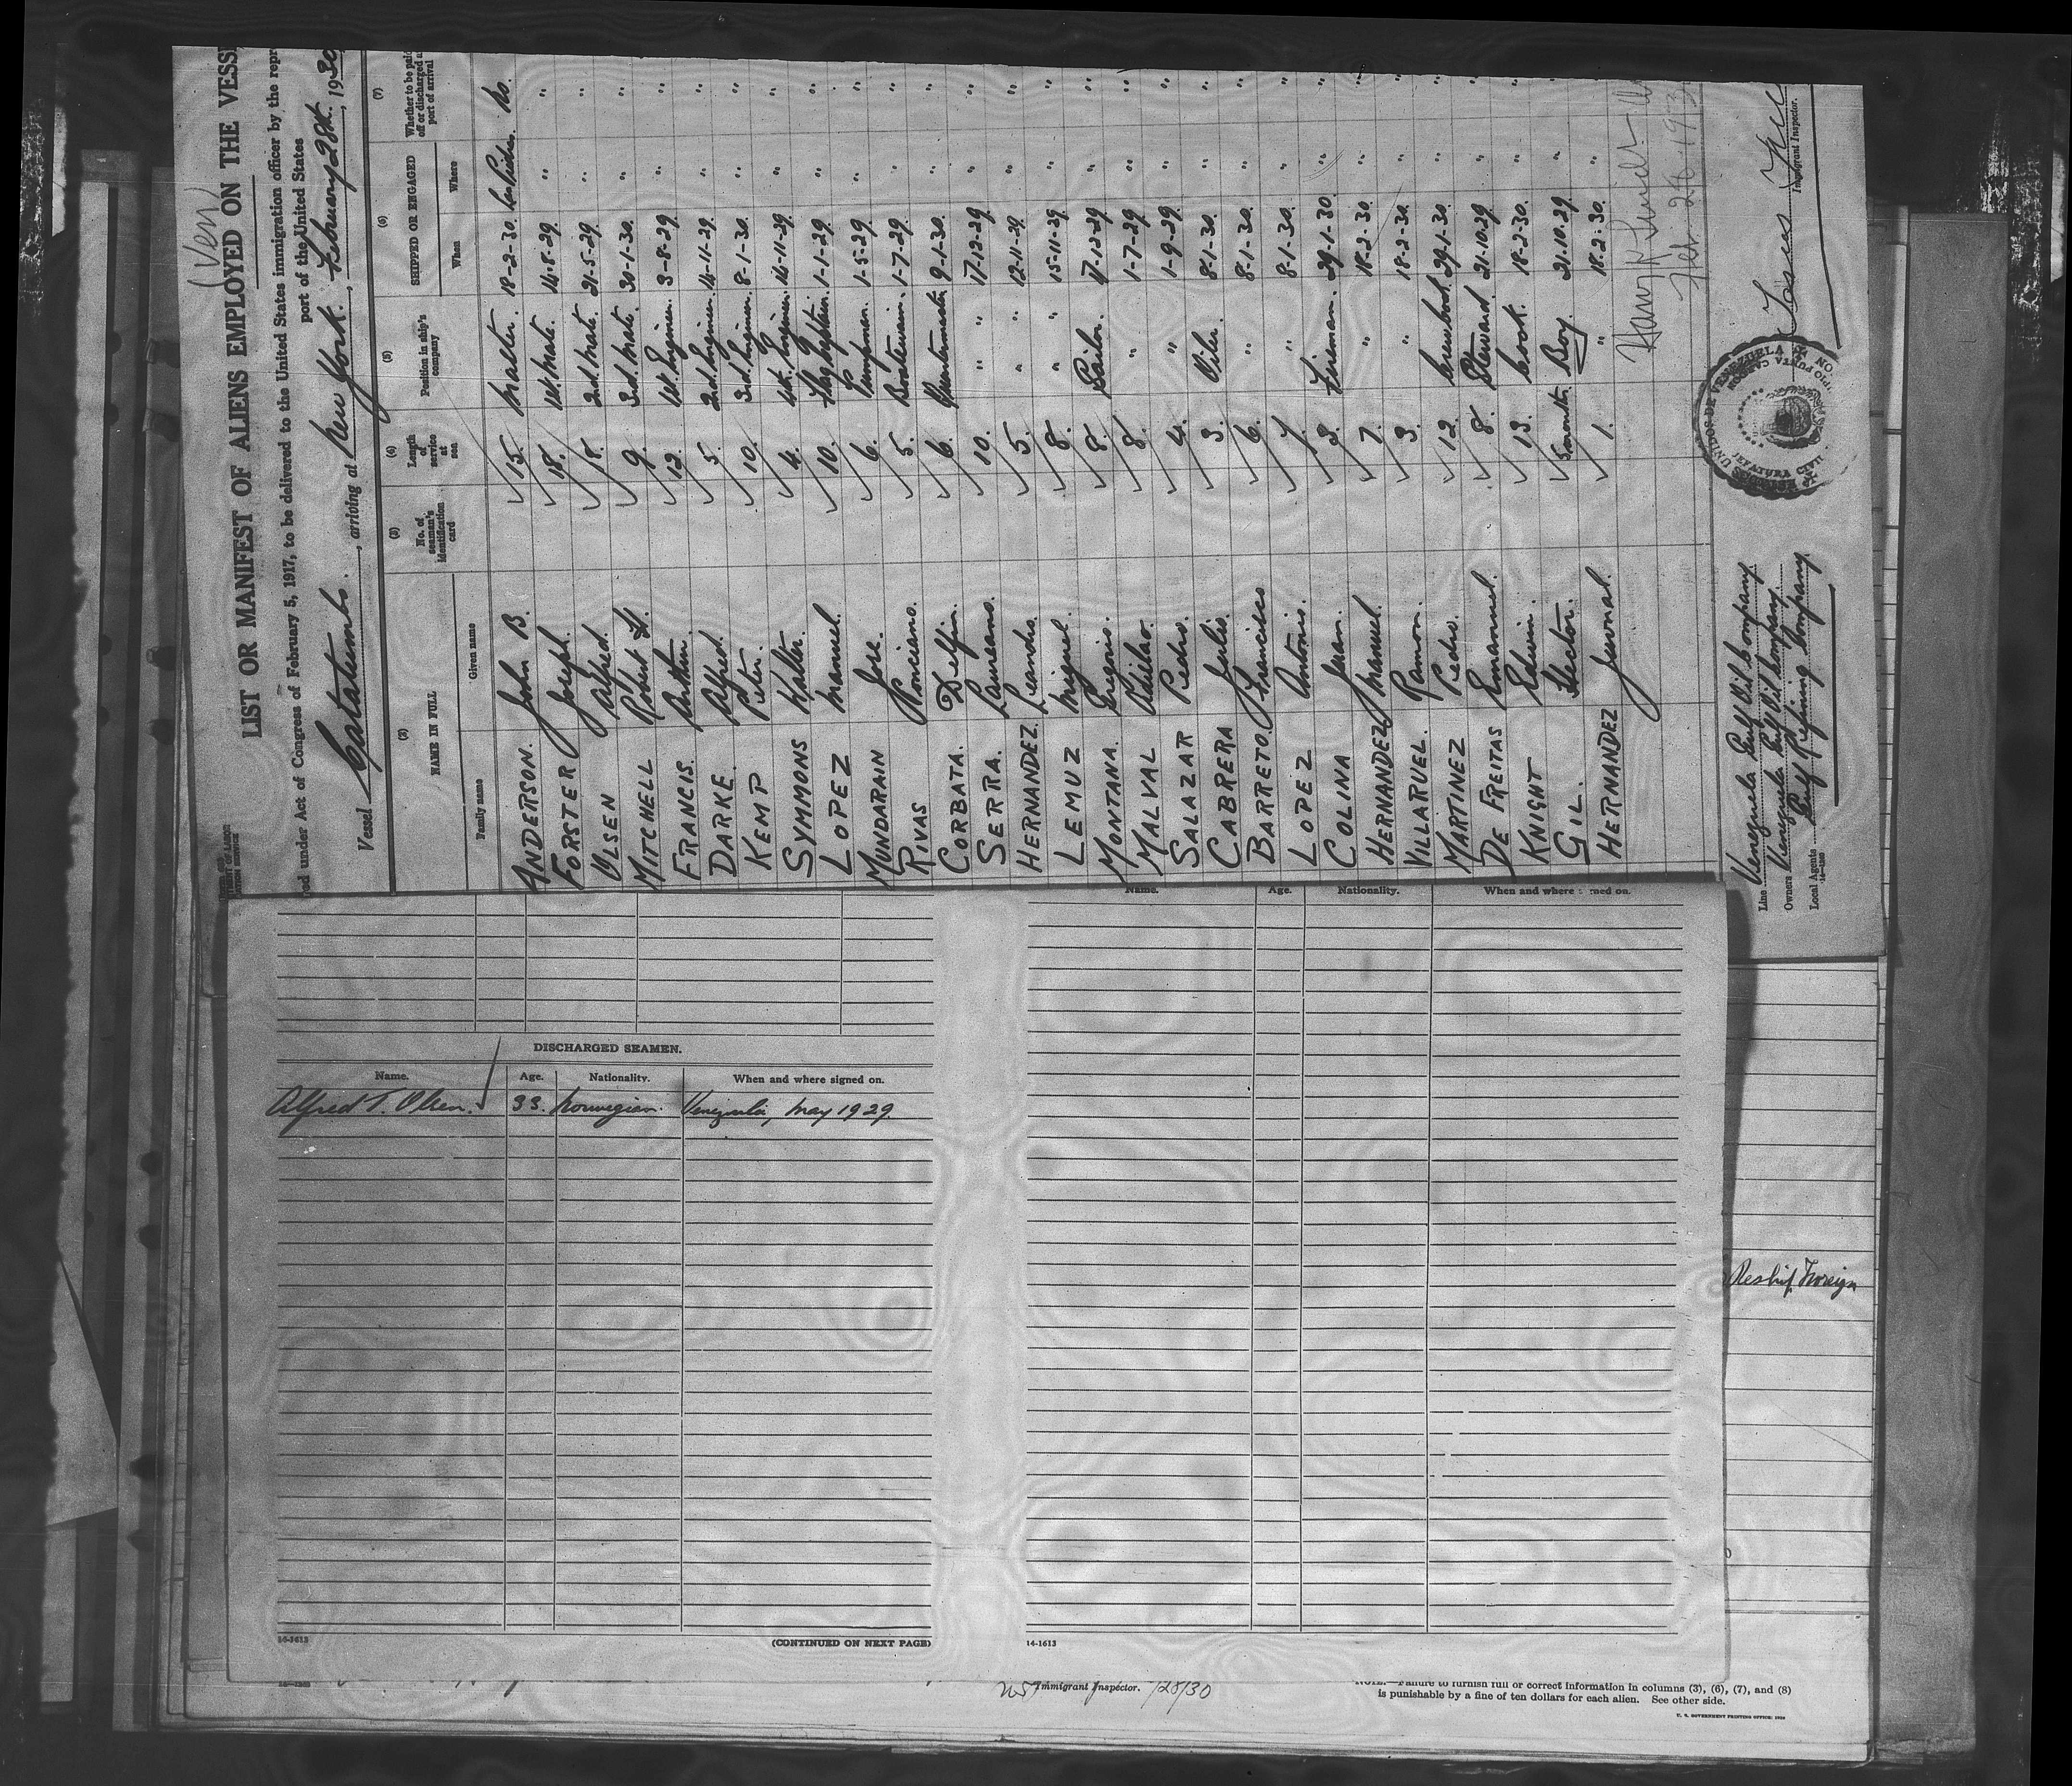 (Ven)
LIST OR MANIFEST OF ALIENS EMPLOYED ON THE VESS
red under Act of Congress of February 5, 1917, to be delivered to the United States immigration officer by the repr
port of the United States
Vessel Catatumbo., arriving at New York., February 28th., 1930
(2) (3) (4) (5) (6) (7)
NAME IN FULL No. of seaman's identification card Length of service at sea Position in ship's company SHIPPED OR ENGAGED Whether to be paid off or discharged at port of arrival
Family name Given name When Where
ANDERSON. John B. 15. Master. 18-2-30. Las Piedras. No.
FORSTER Joseph. 18. 1st. Mate. 14-8-29. " "
OLSEN Alfred. 18. 2nd. Mate. 21-5-29. " "
MITCHELL Robert H. 9. 3rd. Mate. 30-1-30. " "
FRANCIS. Arthur. 12. 1st. Engineer. 3-8-29. " "
DARKE. Alfred. 5. 2nd. Engineer. 14-11-29. " "
KEMP Peter. 10. 3rd. Engineer. 8-1-30. " "
SYMMONS Walter. 4. 4th. Engineer. 14-11-29. " "
LOPEZ Manuel. 10. 1-1-29. " "
MUNDARAIN Jose. 6. Pumpman. 1-5-29. " "
RIVAS Ponciano. 5. Boatswain. 1-7-29. " "
CORBATA. Delfin. 6. Quartermaster 9-1-30. " "
SERRA. Laureano. 10. " 17-12-29. " "
HERNANDEZ. Leandro. 5. " 12-11-29. " "
LEMUZ Miguel. 8. " 15-11-29. " "
MONTANA. Gregorio. 8. Sailor. 17-12-29 " "
MALVAL 8. " 1-7-29 " "
SALAZAR Pedro. 4. " 1-9-29. " "
CABRERA Julio. 3. Oiler. 8-1-30. " "
BARRETO. Francisco 6. " 8-1-30. " "
LOPEZ Antonio. 7. " 8-1-30. " "
COLINA Juan. 3. Fireman. 29-1-30. " "
HERNANDEZ Manuel. 7. " 18-2-30. " "
VILLARUEL. Ramon. 3. " 18-2-30. " "
MARTINEZ Pedro. 12. 29-1-30. " "
DE FREITAS Emanuel. 8. Steward. 21-10-29. " "
KNIGHT Edwin. 13. Cook. 18-2-30. " "
GIL. Hector. 5 months. Boy. 21.10.29. " "
HERNANDEZ Juvenal. 1. " 18.2.30. " "
Line Venezuela Gulf Oil Company.
Owners Venezuela Gulf Oil Company
Local Agents Gulf Refining Company.
Immigrant Inspector.
JEFATURA CIVIL
Name. Age. Nationality. When and where signed on.
DISCHARGED SEAMEN.
Name. Age. Nationality. When and where signed on.
Alfred T. Olsen. 33. Norwegian. Venezuela, May 1929.
14-1613 (CONTINUED ON NEXT PAGE)
14-1613
Reship Foreign
Immigrant Inspector. /28/30
NOTE.—Failure to furnish full or correct information in columns (3), (6), (7), and (8)
is punishable by a fine of ten dollars for each alien. See other side.
U. S. GOVERNMENT PRINTING OFFICE: 1929